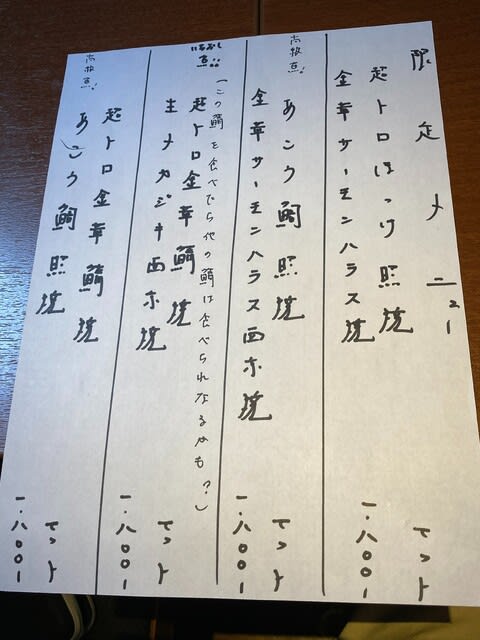 限定メニュー
超トロほっけ照焼
金華サーモンハラス焼
セット
一.八〇〇-
高級魚!
あこう鯛照焼
金華サーモンハラス西京焼
セット
一.八〇〇-
いちおし
魚!!
(この鯖を食べたら他の鯖は食べられなるかも?)
超トロ金華鯖焼
生メカジキ西京焼
セット
一.八〇〇-
超トロ金華鯖焼
高級魚!
あこう鯛照焼
セット
一.八〇〇-